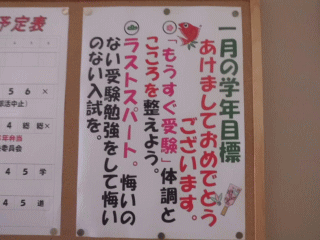 一月の学年目標
あけましておめでとう
ございます。
「もうすぐ受験」体調と
こころを整えよう。
ラストスパート。悔いの
ない受験勉強をして悔い
のない入試を。
予定表
5 6 ×
4 総 総×
委員会
4 5 学
4 5 道